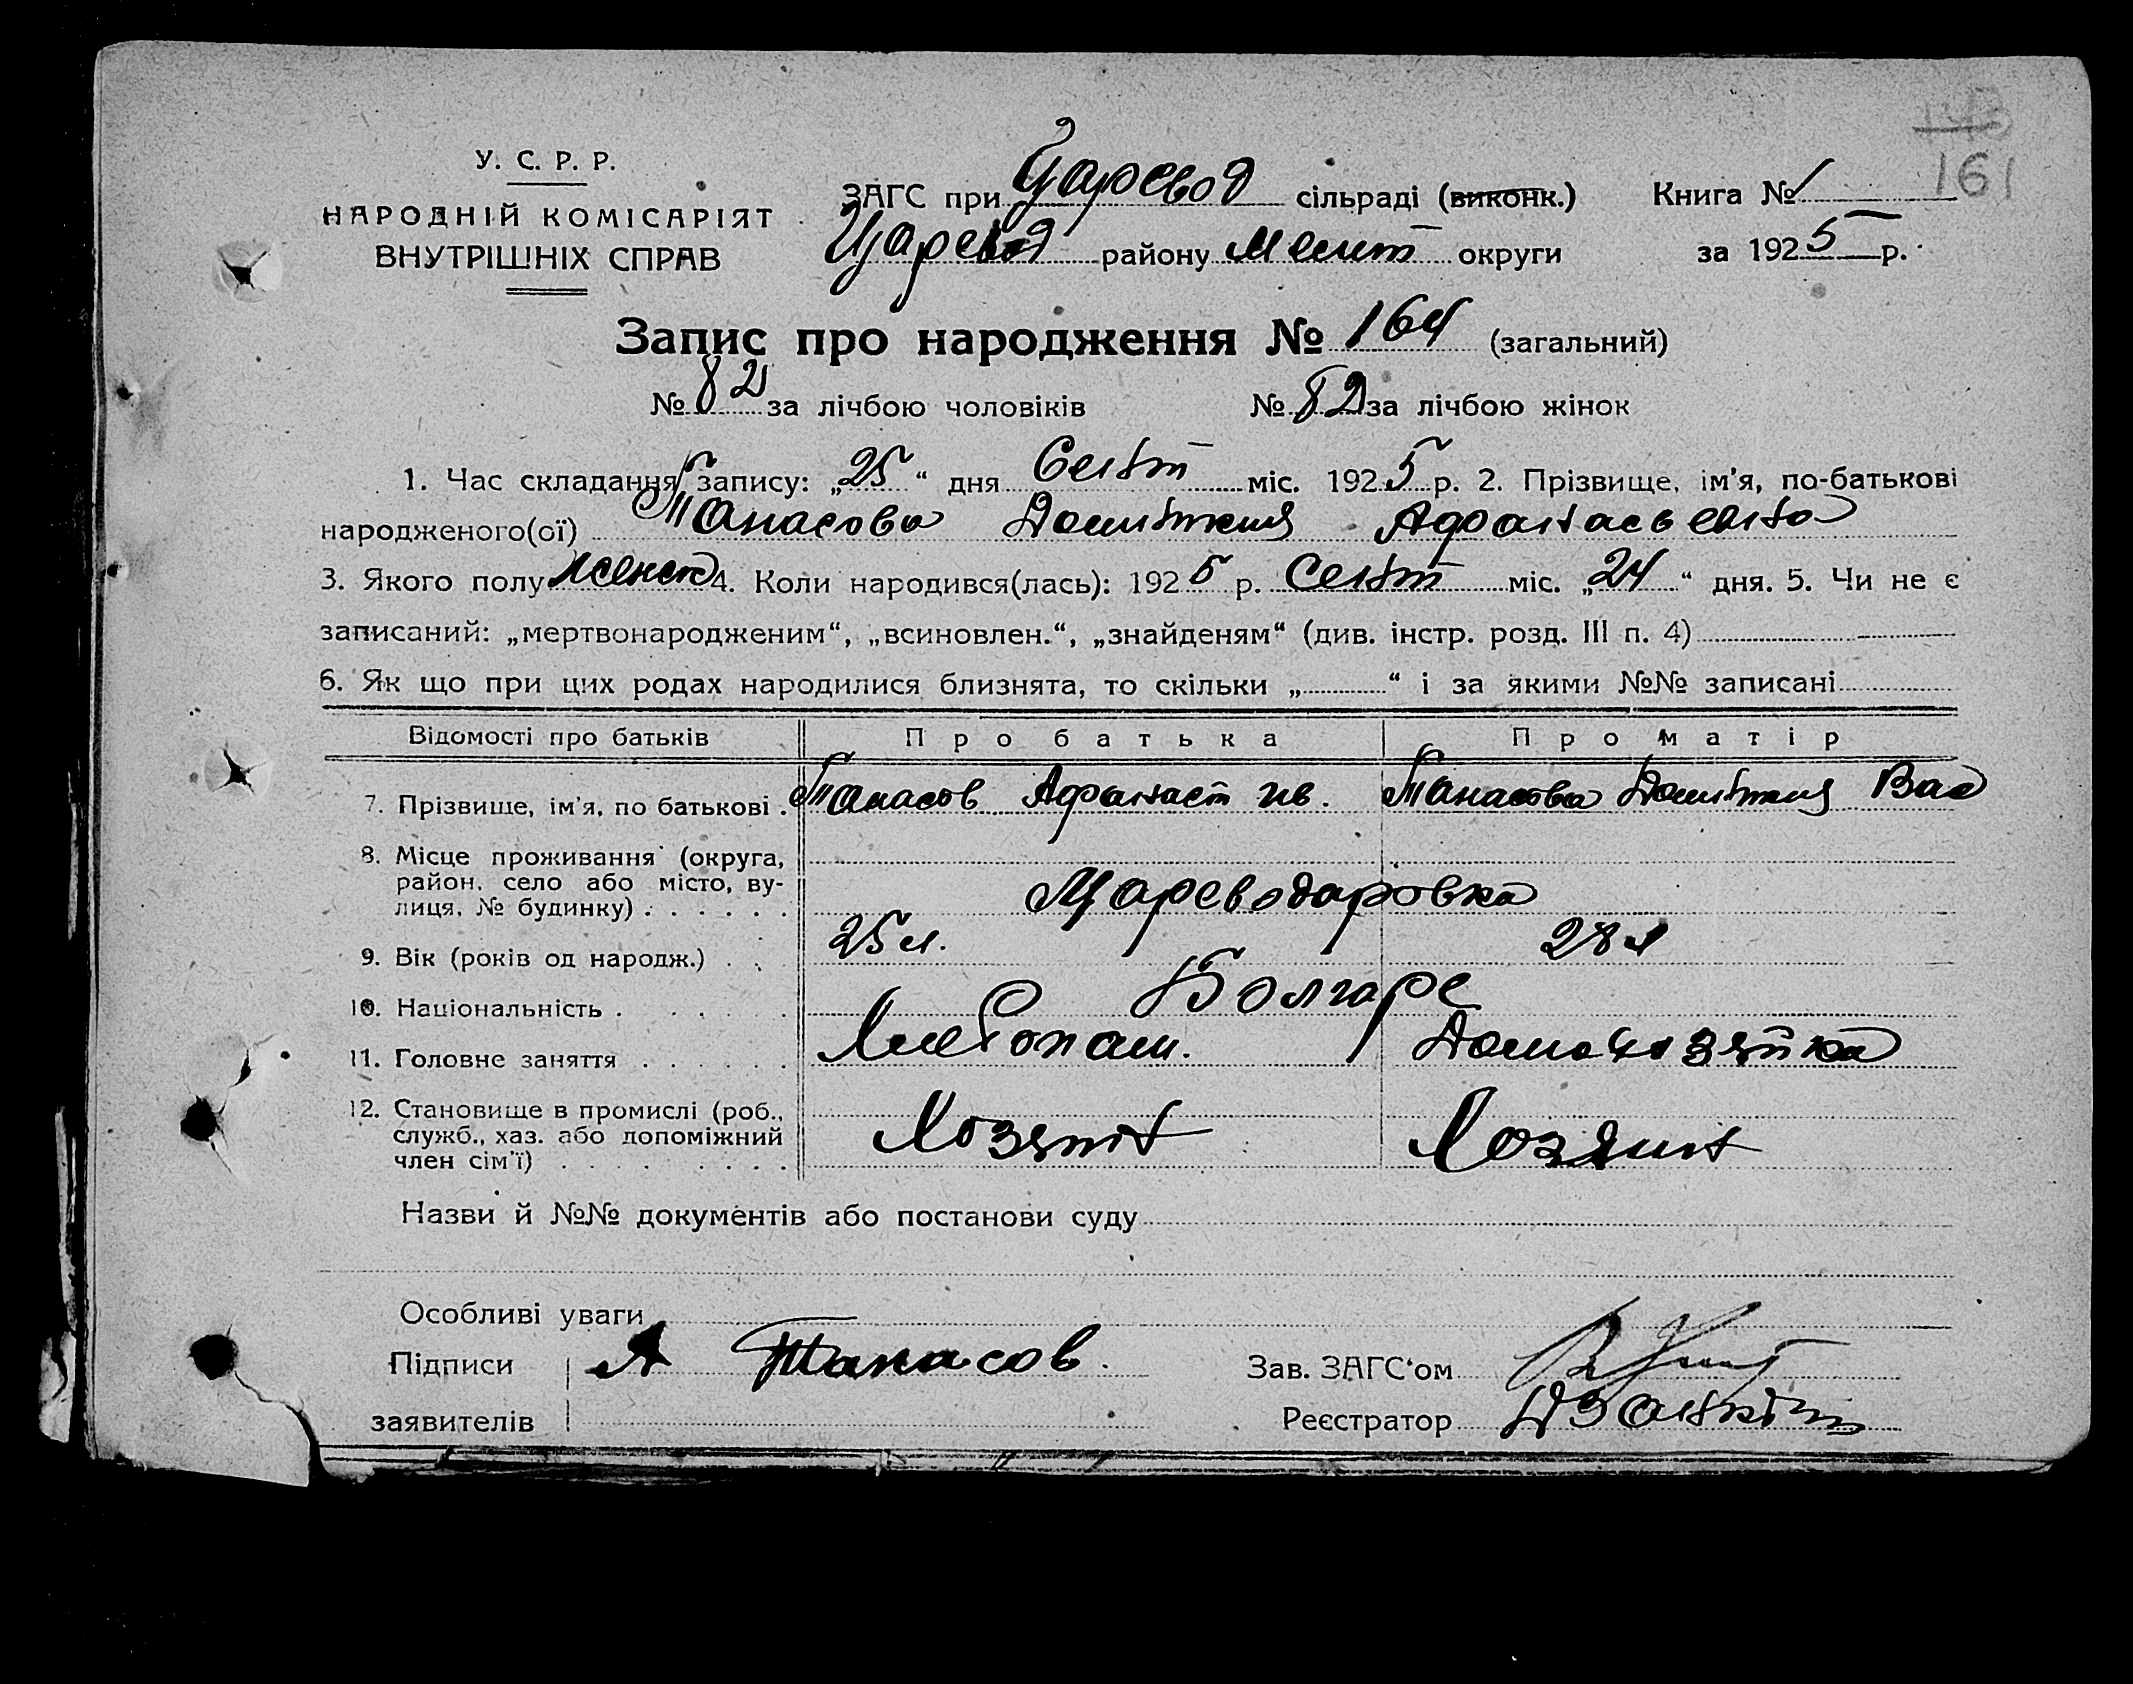 143
161
У. С. Р. Р.
НАРОДНІЙ КОМІСАРІЯТ
ВНУТРІШНІХ СПРАВ
ЗАГС при Царевод сільраді (виконк.) Книга № 1
Царевод району Мелит округи за 1925 р.
Запис про народження № 164 (загальний)
№ 82 за лічбою чоловіків № 82 за лічбою жінок
1. Час складання запису: „25“ дня Сент міс. 1925 р. 2. Прізвище, ім'я, по-батькові
народженого(ої) Танасова Домникия Афанасьевна
3. Якого полу женск 4. Коли народився(лась): 1925 р. Сент міс. „24“ дня. 5. Чи не є
записаний: „мертвонародженим“, „всиновлен.“, „знайденям“ (див. інстр. розд. III п. 4)
6. Як що при цих родах народилися близнята, то скільки „ “ і за якими №№ записані
Відомості про батьків Про батька Про матір
7. Прізвище, ім'я, по батькові . Танасов Афанаси Ив. Танасова Домникия Вас
8. Місце проживання (округа,
район, село або місто, ву-
лиця, № будинку) . . . . . . Цареводаровка
9. Вік (років од народж.) . . 25 л. 28 л
10. Національність . . . . . Болгаре
11. Головне заняття . . . . . . Хлебопаш. Домохозяйка
12. Становище в промислі (роб.,
служб., хаз. або допоміжний
член сім'ї) . . . . . . . . Хозяин Хозяин
Назви й №№ документів або постанови суду
Особливі уваги
Підписи А Танасов Зав. ЗАГС'ом
заявителів Реєстратор